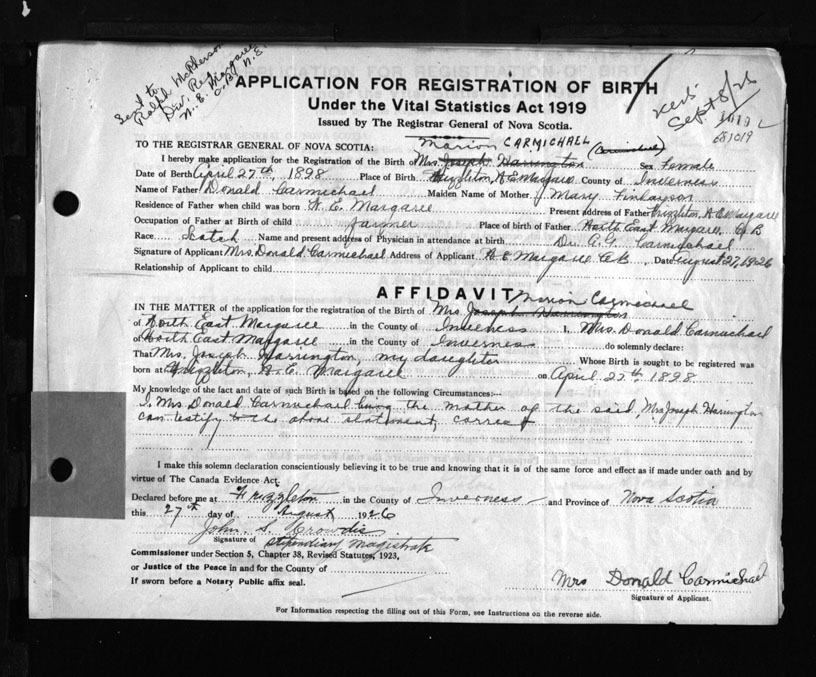 Sent to
Ralph McPherson
Div. Reg.
N. E. Margaree
C. B. N. S.
Recd
Sept 8/26
APPLICATION FOR REGISTRATION OF BIRTH
Under the Vital Statistics Act 1919
Issued by The Registrar General of Nova Scotia.
Marion CARMICHAEL
(Carmichael)
TO THE REGISTRAR GENERAL OF NOVA SCOTIA:
I hereby make application for the Registration of the Birth of Mrs. Joseph Harrington Sex Female
Date of Birth April 27th, 1898 Place of Birth Frizzleton, N E Margaree County of Inverness
Name of Father Donald Carmichael Maiden Name of Mother Mary Finlayson
Residence of Father when child was born N. E. Margaree Present address of Father Frizzleton, N E Margaree
Occupation of Father at Birth of child farmer Place of birth of Father North East Margaree C B
Race Scotch Name and present address of Physician in attendance at birth Dr. A. G. Carmichael
Signature of Applicant Mrs. Donald Carmichael Address of Applicant N E Margaree C B Date August 27, 1926
Relationship of Applicant to child
AFFIDAVIT
Marion Carmichael
IN THE MATTER of the application for the registration of the Birth of Mrs. Joseph Harrington
of North East Margaree in the County of Inverness I, Mrs. Donald Carmichael
of North East Margaree in the County of Inverness do solemnly declare:
That Mrs. Joseph Harrington, my daughter Whose Birth is sought to be registered was
born at Frizzleton, N. E. Margaree on April 27th, 1898
My knowledge of the fact and date of such Birth is based on the following Circumstances:—
I, Mrs Donald Carmichael being the mother of the said, Mrs Joseph Harrington
can testify to the above statement, correct
I make this solemn declaration conscientiously believing it to be true and knowing that it is of the same force and effect as if made under oath and by
virtue of The Canada Evidence Act.
Declared before me at Frizzleton in the County of Inverness and Province of Nova Scotia
this 27th day of August 1926
John S. Crowdis
Signature of Stipendiary Magistrate
Commissioner under Section 5, Chapter 38, Revised Statutes, 1923,
or Justice of the Peace in and for the County of
If sworn before a Notary Public affix seal.
Mrs Donald Carmichael
Signature of Applicant.
For Information respecting the filling out of this Form, see Instructions on the reverse side.